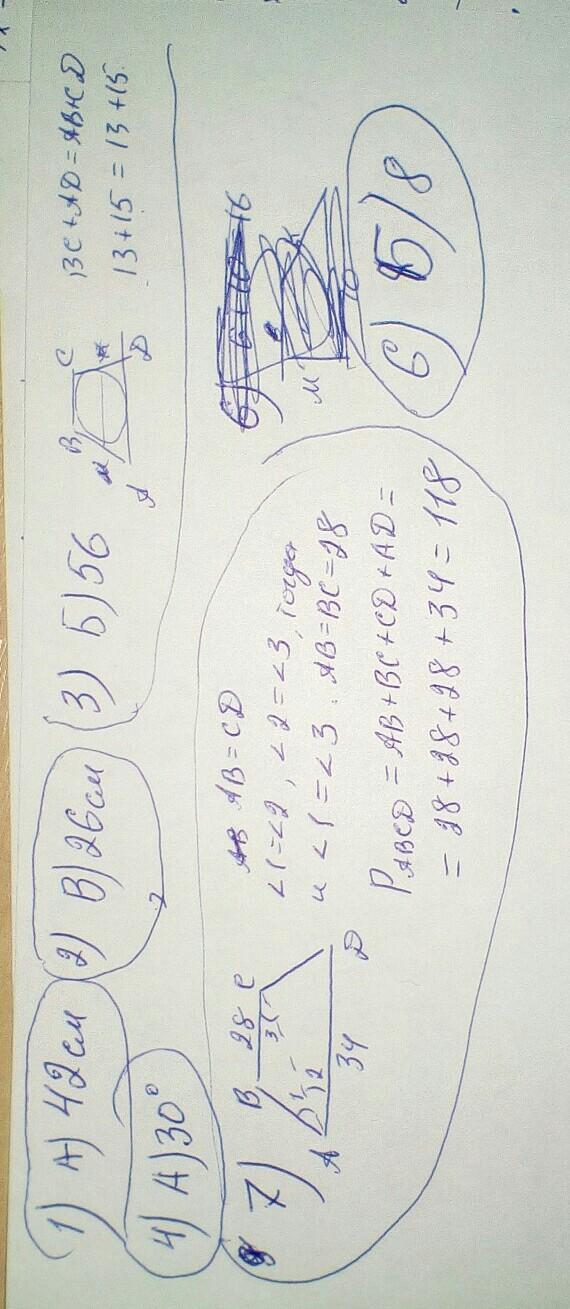 1) А) 42 см
2) В) 26 см
3) Б) 56
М B C
A D
BC + AD = AB + CD
13 + 15 = 13 + 15
4) А) 30°
7)
B 28 C
1 2 3
A 34 D
AB = CD
∠1=∠2, ∠2=∠3, тогда
и ∠1=∠3. AB=BC=28
P ABCD = AB+BC+CD+AD=
= 28+28+28+34=118
6)
М
10
6) Б) 8